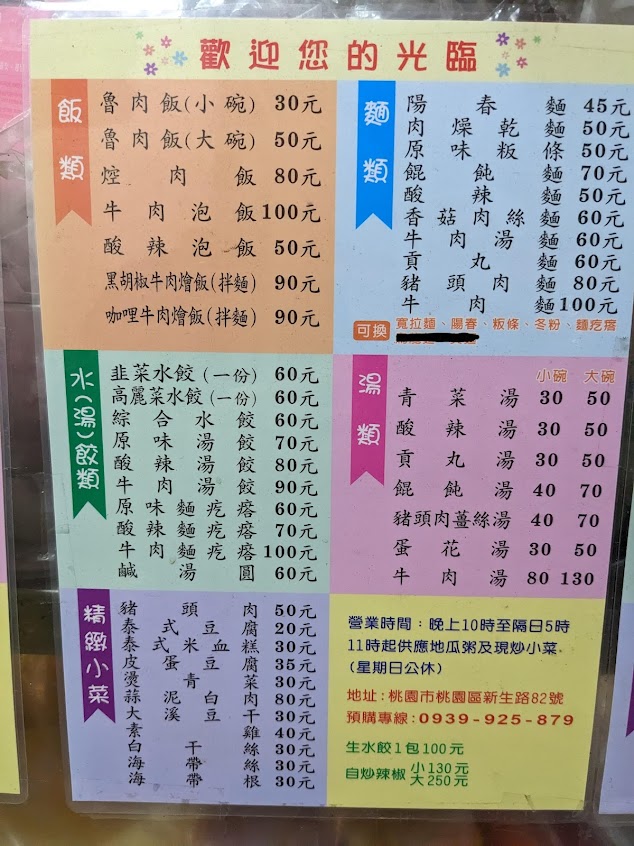 歡迎您的光臨
飯類
魯肉飯(小碗) 30元
魯肉飯(大碗) 50元
焢肉飯 80元
牛肉泡飯 100元
酸辣泡飯 50元
黑胡椒牛肉燴飯(拌麵) 90元
咖哩牛肉燴飯(拌麵) 90元
麵類
陽春麵 45元
肉燥乾麵 50元
原味粄條 50元
餛飩麵 70元
酸辣麵 50元
香菇肉絲麵 60元
牛肉湯麵 60元
貢丸麵 60元
豬頭肉麵 80元
牛肉麵 100元
可換 寬拉麵、陽春、粄條、冬粉、麵疙瘩
水(湯)餃類
韭菜水餃(一份) 60元
高麗菜水餃(一份) 60元
綜合水餃 60元
原味湯餃 70元
酸辣湯餃 80元
牛肉湯餃 90元
原味麵疙瘩 60元
酸辣麵疙瘩 70元
牛肉麵疙瘩 100元
鹹湯圓 60元
湯類
小碗 大碗
青菜湯 30 50
酸辣湯 30 50
貢丸湯 30 50
餛飩湯 40 70
豬頭肉薑絲湯 40 70
蛋花湯 30 50
牛肉湯 80 130
精緻小菜
豬頭肉 50元
泰式豆腐 20元
泰式米血糕 30元
皮蛋豆腐 35元
燙青菜 30元
蒜泥白肉 80元
大溪豆干 30元
素雞 40元
白干絲 30元
海帶絲 30元
海帶根 30元
營業時間：晚上10時至隔日5時
11時起供應地瓜粥及現炒小菜
(星期日公休)
地址:桃園市桃園區新生路82號
預購專線:0939-925-879
生水餃1包100元
自炒辣椒 小130元
大250元